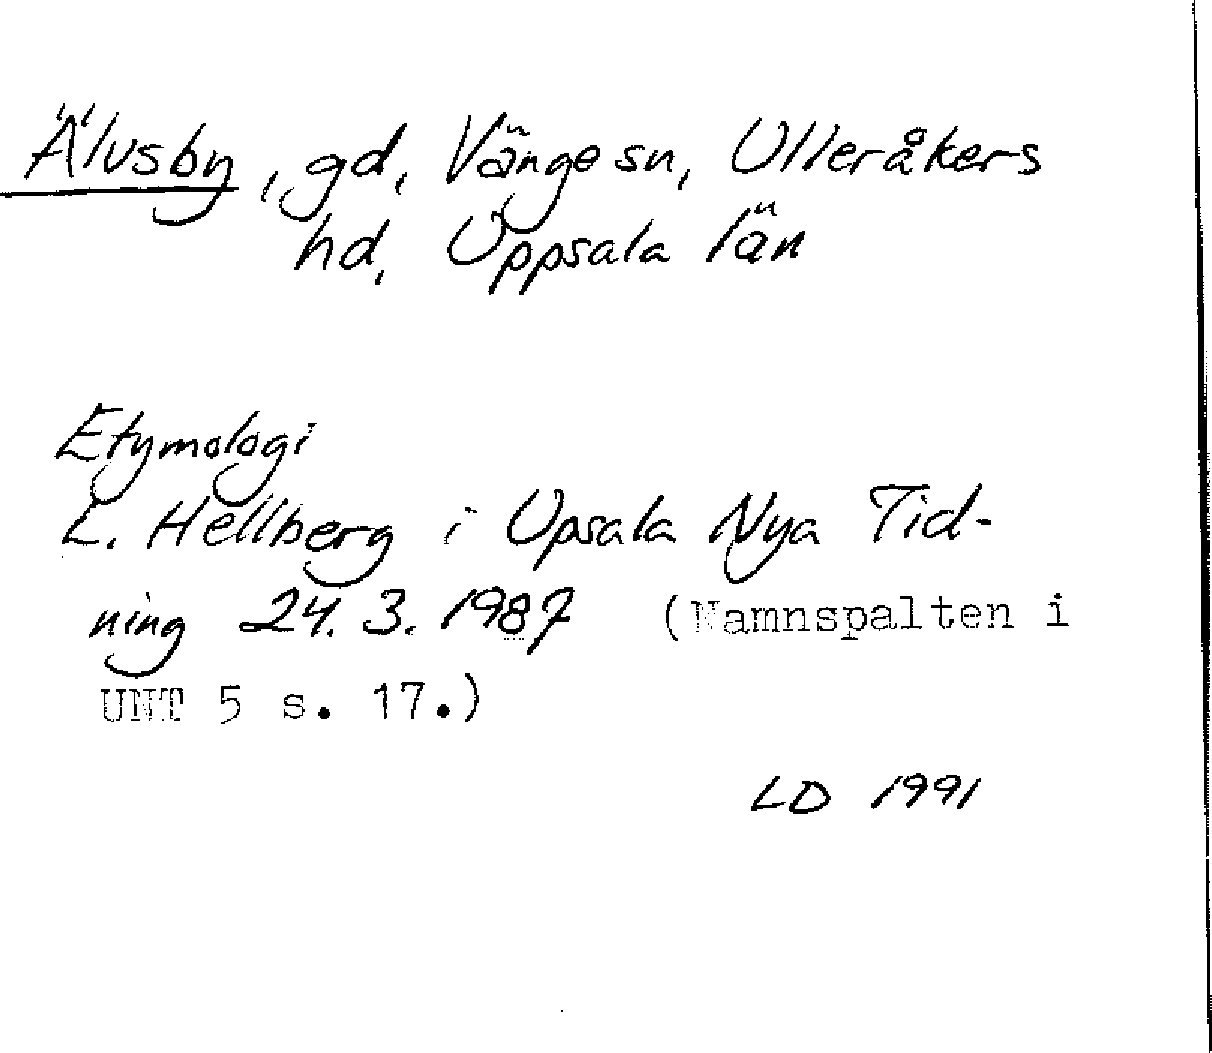 Älvsby, gd, Vänge sn, Ulleråkers
hd, Uppsala län
Etymologi
L. Hellberg i Upsala Nya Tid-
ning 24.3.1987 (Namnspalten i
UNT 5 s. 17.)
LD 1991